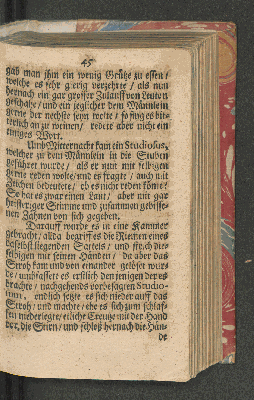 45
gab man jhm ein wenig Grütze zu essen /
welche es sehr gierig verzehrte / als nun
hernach ein gar grosser Zulauff von Leuten
geschahe / und ein jeglicher dem Männlein
gerne der nechste seyn wolte / so fing es bit-
terlich an zu weinen / redete aber nicht ein
einiges Wort.
Umb Mitternacht kam ein Studiosus,
welcher zu dem Männlein in die Stuben
geführet wurde / als er nun mit selbigen
gerne reden wolte / und es fragte / auch mit
Zeichen bedeutete / ob es nicht reden könte?
So hat es zwar einen Laut / aber mit gar
heisseriger Stimme und zusammen gebisse-
nen Zähnen von sich gegeben.
Darauff wurde es in eine Kammer
gebracht / alda begriff es die Riemen eines
daselbst liegenden Sattels / und strich die-
selbigen mit seinen Händen / da aber das
Stroh kam und von einander gelöset wur-
de / umbfassete es erstlich den jenigen der es
brachte / nachgehends vorbesagten Studio-
sum, endlich setzte es sich nieder auff das
Stroh / und machte / ehe es sich zum schlaf-
fen niederlegte / etliche Creutze mit der Hand
vor die Stirn / und schloß hernach die Hän-
de